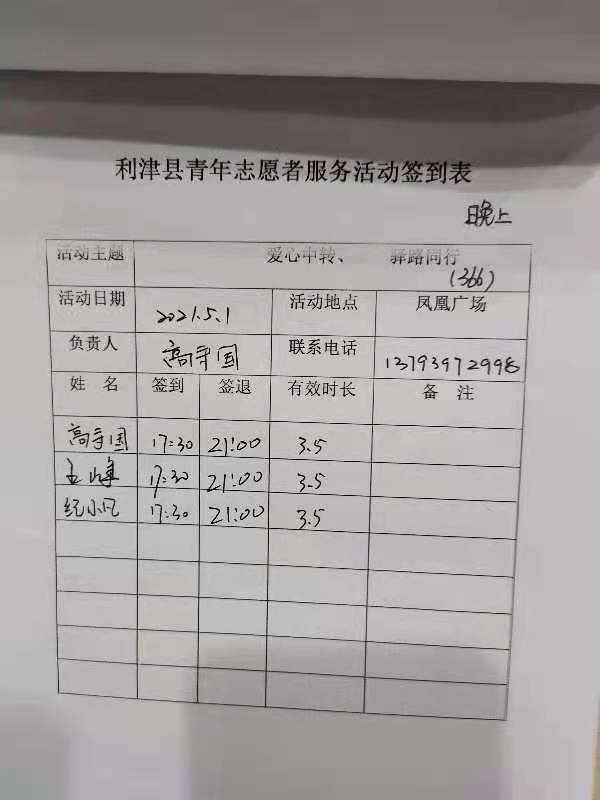 利津县青年志愿者服务活动签到表
晚上
活动主题 爱心中转、 驿路同行
(366)
活动日期 2021.5.1 活动地点 凤凰广场
负责人 高守国 联系电话 13793972998
姓 名 签到 签退 有效时长 备 注
高守国 17:30 21:00 3.5
王峰 17:30 21:00 3.5
纪小凡 17:30 21:00 3.5